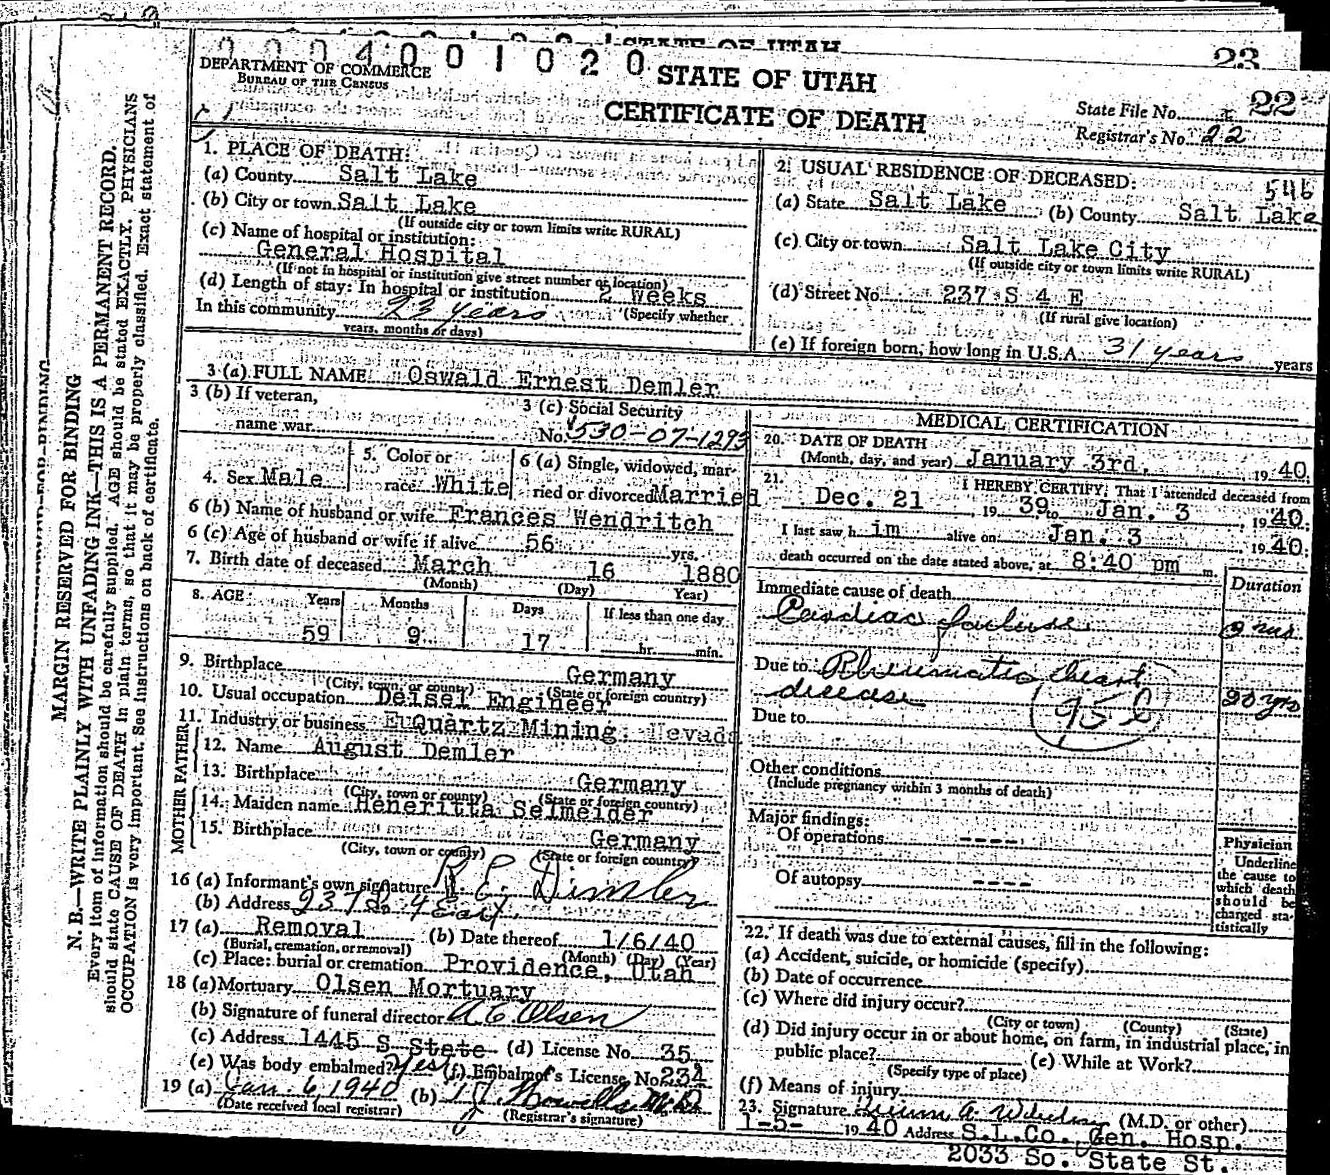 0 0 0 4 0 0 1 0 2 0
STATE OF UTAH
23
DEPARTMENT OF COMMERCE
BUREAU OF THE CENSUS
STATE OF UTAH
CERTIFICATE OF DEATH
State File No. 22
Registrar's No. 22
MARGIN RESERVED FOR BINDING
N. B.—WRITE PLAINLY WITH UNFADING INK—THIS IS A PERMANENT RECORD.
Every item of information should be carefully supplied. AGE should be stated EXACTLY. PHYSICIANS
should state CAUSE OF DEATH in plain terms, so that it may be properly classified. Exact statement of
OCCUPATION is very important. See instructions on back of certificate.
1. PLACE OF DEATH:
(a) County Salt Lake
(b) City or town Salt Lake
(If outside city or town limits write RURAL)
(c) Name of hospital or institution:
General Hospital
(If not in hospital or institution give street number or location)
(d) Length of stay: In hospital or institution 2 Weeks
In this community 23 years (Specify whether
years, months or days)
2. USUAL RESIDENCE OF DECEASED: 546
(a) State Salt Lake (b) County Salt Lake
(c) City or town Salt Lake City
(If outside city or town limits write RURAL)
(d) Street No. 237 S 4 E
(If rural give location)
(e) If foreign born, how long in U.S.A. 31 years years
3 (a) FULL NAME Oswald Ernest Demler
3 (b) If veteran,
name war
3 (c) Social Security
No. 530-07-1293
4. Sex Male
5. Color or
race White
6 (a) Single, widowed, mar-
ried or divorced Married
6 (b) Name of husband or wife Frances Wendritch
6 (c) Age of husband or wife if alive 56 yrs.
7. Birth date of deceased March 16 1880
(Month) (Day) Year)
8. AGE Years Months Days If less than one day
59 9 17 hr. min.
9. Birthplace Germany
(City, town or county) (State or foreign country)
10. Usual occupation Deisel Engineer
11. Industry or business Quartz Mining Nevada
FATHER
12. Name August Demler
13. Birthplace Germany
(City, town or county) (State or foreign country)
MOTHER
14. Maiden name Heneritta Selmeider
15. Birthplace Germany
(City, town or county) (State or foreign country)
16 (a) Informant's own signature R E Dimler
(b) Address 237 So 4 East
17 (a) Removal (b) Date thereof 1/6/40
(Burial, cremation, or removal) (Month) (Day) (Year)
(c) Place: burial or cremation Providence, Utah
18 (a) Mortuary Olsen Mortuary
(b) Signature of funeral director A C Olsen
(c) Address 1445 S State (d) License No. 35
(e) Was body embalmed? Yes (f) Embalmer's License No. 234
19 (a) Jan. 6, 1940 (b) M.D.
(Date received local registrar) (Registrar's signature)
MEDICAL CERTIFICATION
20. DATE OF DEATH
(Month, day, and year) January 3rd, 19 40
21. I HEREBY CERTIFY, That I attended deceased from
Dec. 21, 19 39 to Jan. 3, 19 40.
I last saw h im alive on Jan. 3, 19 40.
death occurred on the date stated above, at 8:40 pm m.
Duration
Immediate cause of death
Cardiac failure
Due to Rheumatic heart
disease 20 yrs
Due to 95 b
Other conditions
(Include pregnancy within 3 months of death)
Major findings:
Of operations ----
Of autopsy ----
Physician
Underline
the cause to
which death
should be
charged sta-
tistically
22. If death was due to external causes, fill in the following:
(a) Accident, suicide, or homicide (specify)
(b) Date of occurrence
(c) Where did injury occur?
(City or town) (County) (State)
(d) Did injury occur in or about home, on farm, in industrial place, in
public place? (e) While at Work?
(Specify type of place)
(f) Means of injury
23. Signature (M.D. or other)
1-5- 19 40 Address S.L.Co. Gen. Hosp.
2033 So. State St.